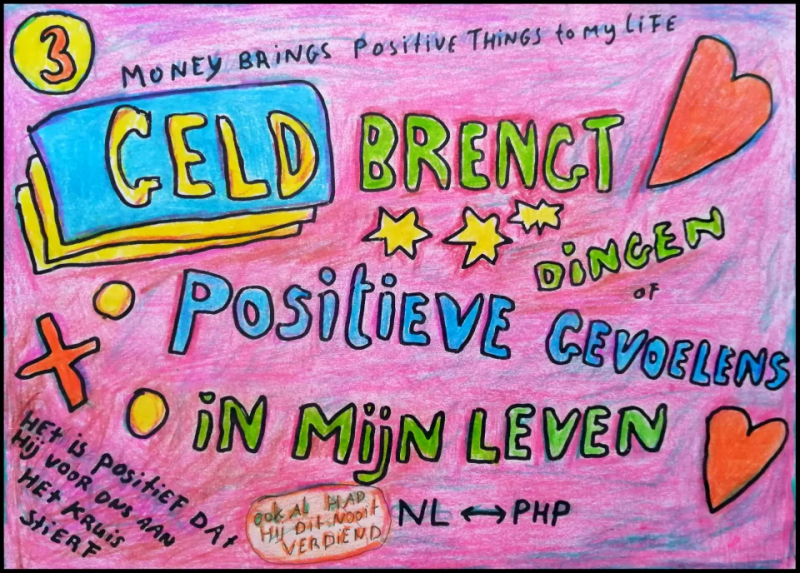 3
MONEY BRINGS POSITIVE THINGS to MY LIFE
GELD BRENGT
DINGEN
OF
POSITIEVE GEVOELENS
iN MijN LEVEN
HET is POSITIEF DAt
HIJ VOOR ONS AAN
HET KRUIS
StiERF
OOK AL HAD
HIJ DIT NOOIT
VERDIEND
NL ↔ PHP